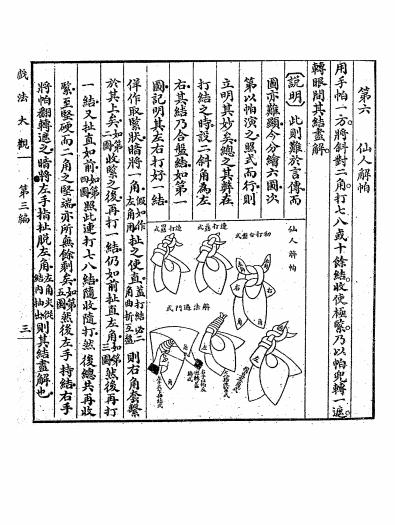 第六　仙人解帕
用手帕一方。將斜對二角打七八或十餘結。收使極緊。乃以帕兜轉一遮。
轉眼間其結盡解。
説明　此則難於言傳。而
圖亦難顯。今分繪六圖。次
第以帕演之。照式而行。則
立明其妙矣。總之其弊在
打結之時。設二斜角為左
右。其結乃合盤結。如第一
圖。記明其左右。打好一結。
佯作取緊狀。暗將一角左角用扯之使直。蓋打結必二角曲折互盤則右角套緊
於其上矣。如第二圖收緊之後。再打一結。仍如前扯直左角。如第三圖然後再打
一結。又扯直如前。如第四圖照此連打七八結。隨收隨打。然後總共再收
緊。至堅硬而一角之堅端。亦所無餘剩矣。如第五圖然後左手持結。右手
將帕翻轉遮之。暗將左手指扯脱左角。左角火從結內抽出則其結盡解也。
仙人解帕
初打合盤式
右角
左角
解法過門式
戲法大觀
第三編
三